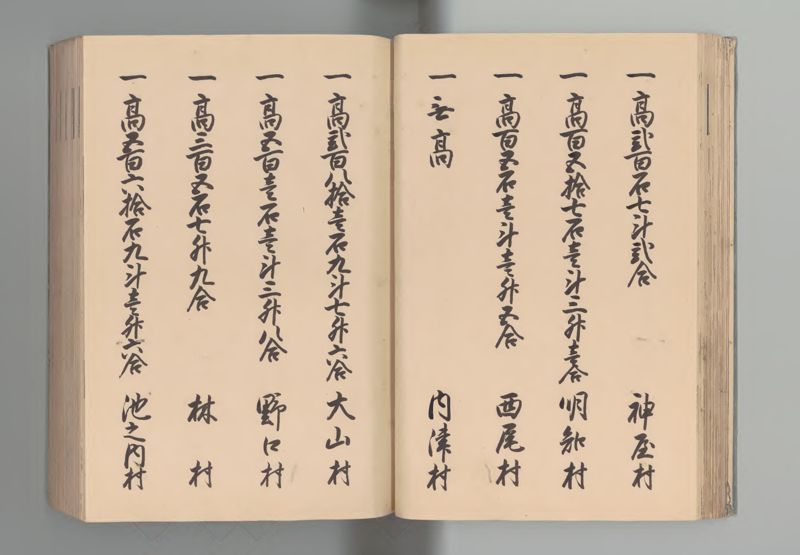 一 高弐百石七斗弐合 神屋村
一 高百五拾七石壱斗三升壱合 明知村
一 高百五石壱斗壱升五合 西尾村
一 無高 内津村
一 高弐百八拾壱石九斗七升六合 大山村
一 高五百壱石壱斗三升八合 野口村
一 高三百五石七升九合 林村
一 高五百六拾石九斗壱升六合 池之内村